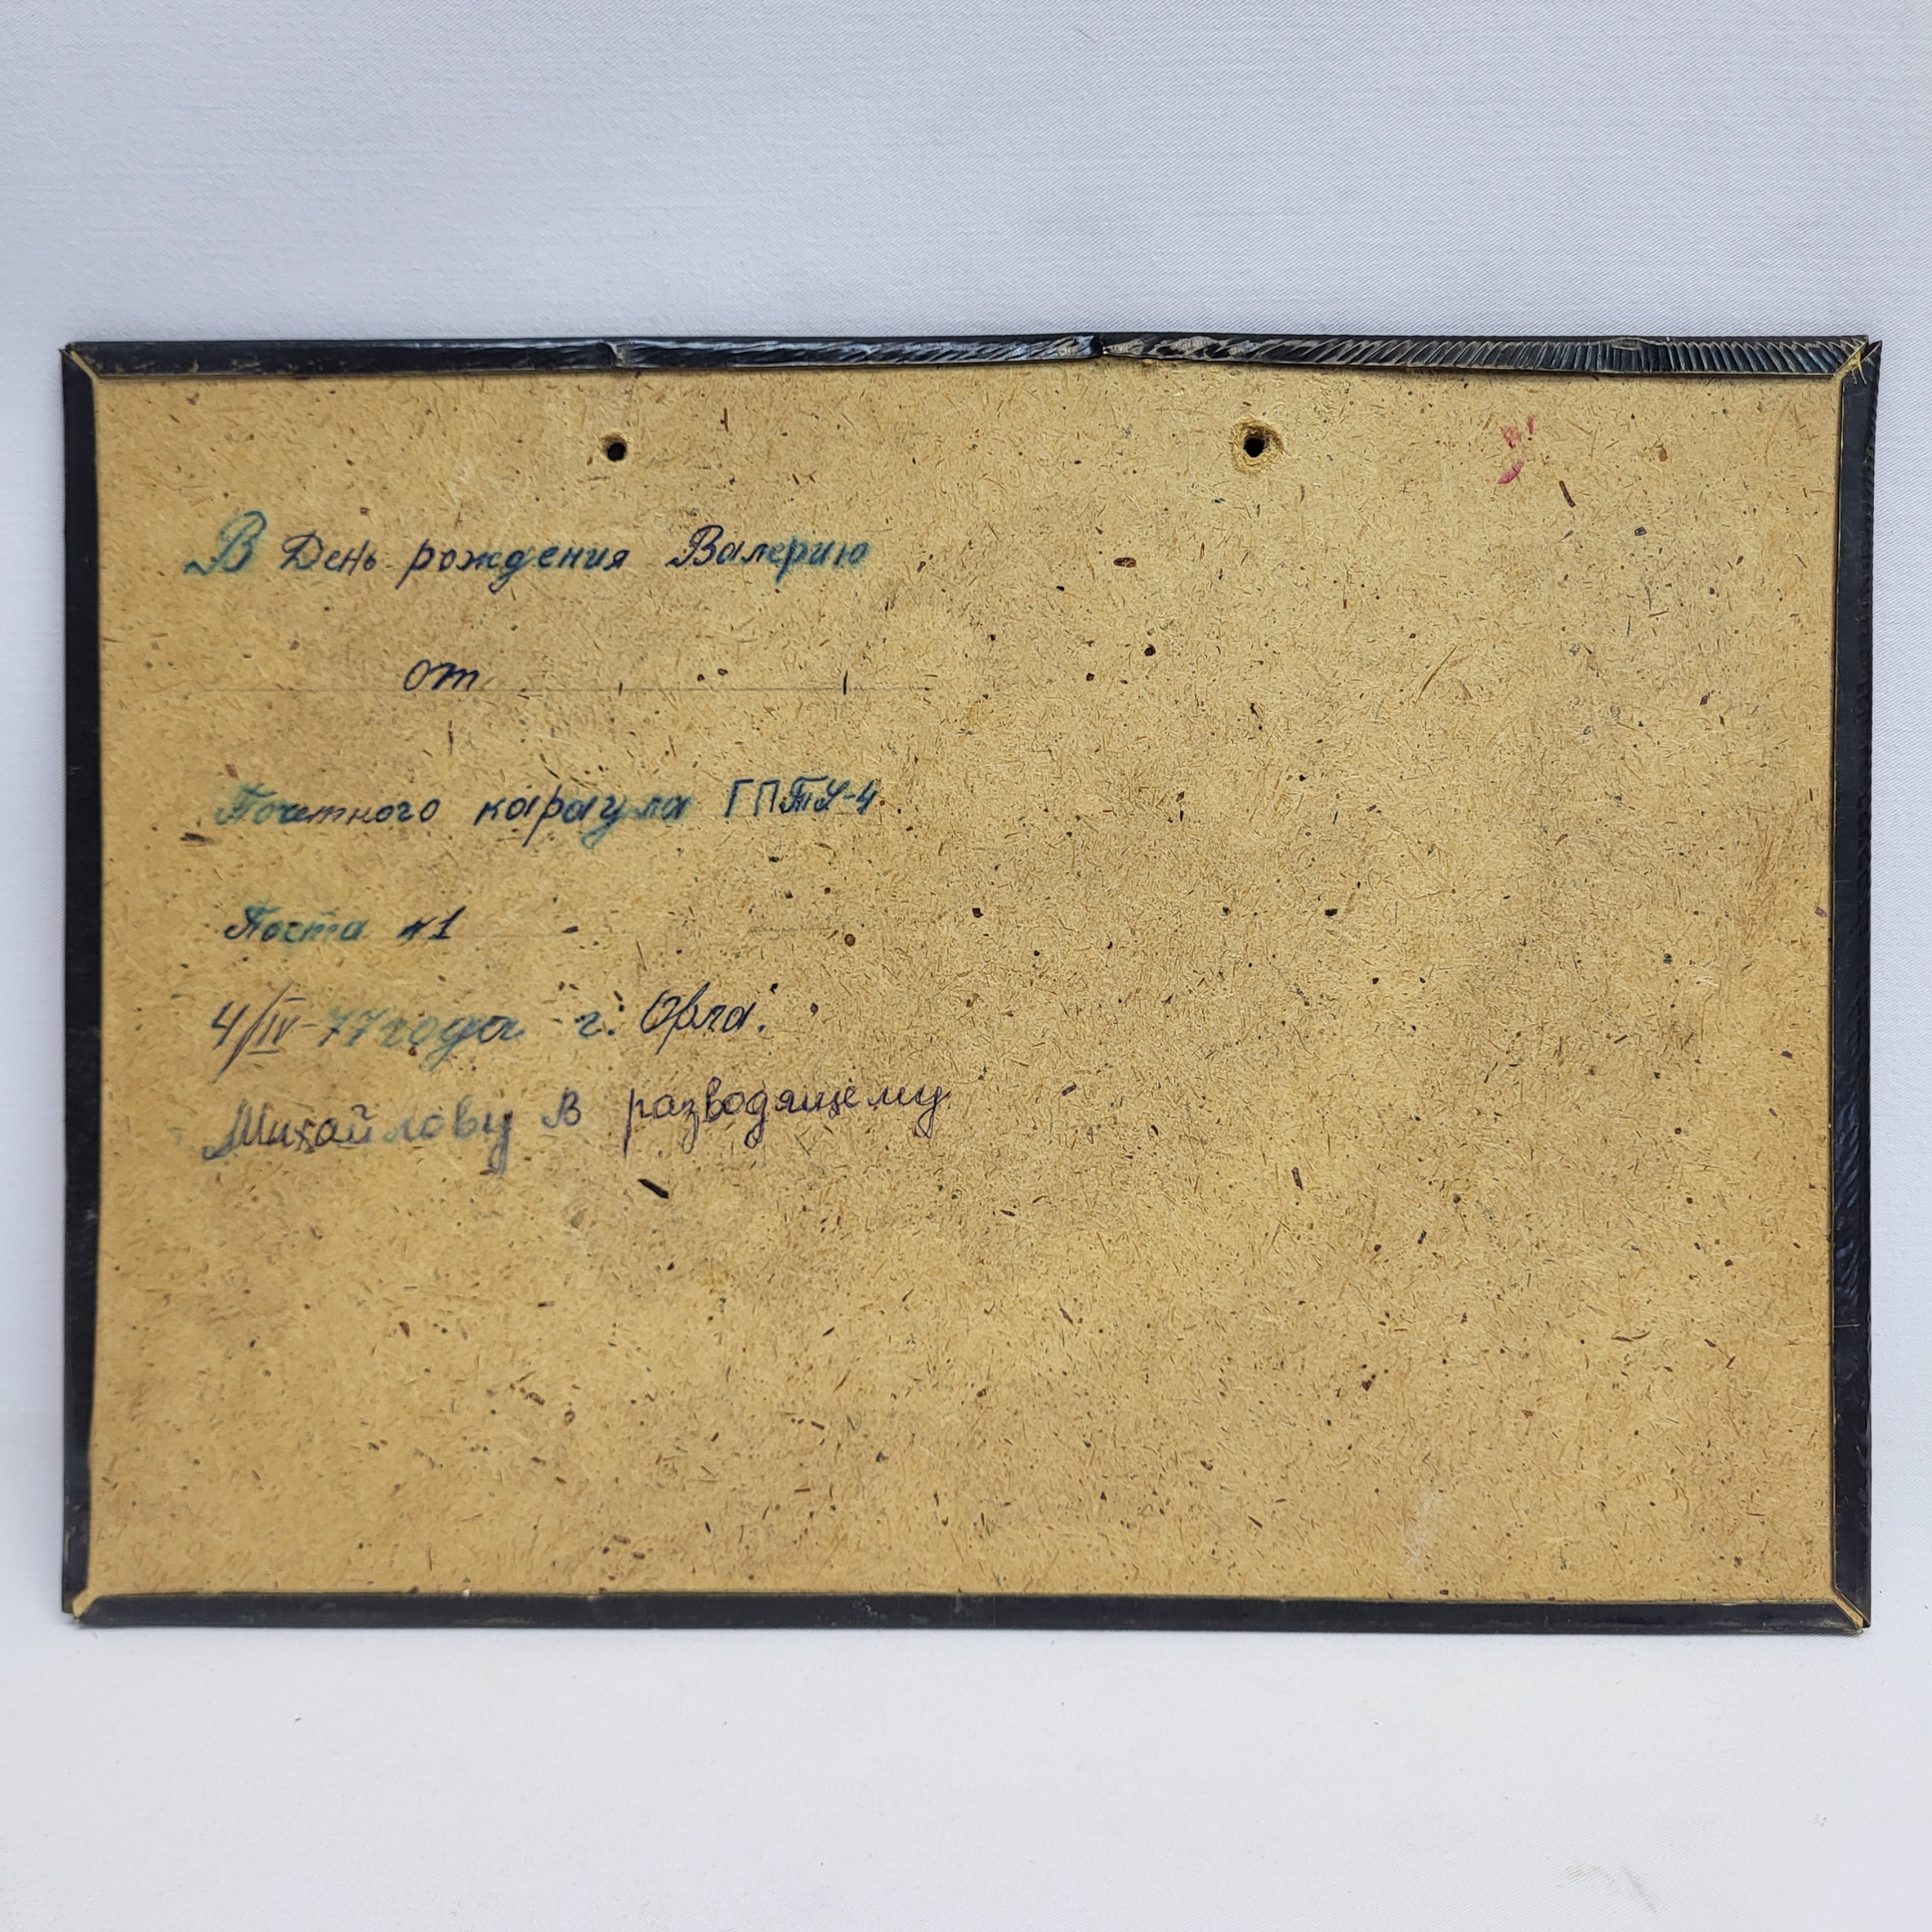 В День рождения Валерию
от
Почетного караула ГПТУ-4
Поста №1
4/IV-77 года г. Орла.
Михайлову В разводящему